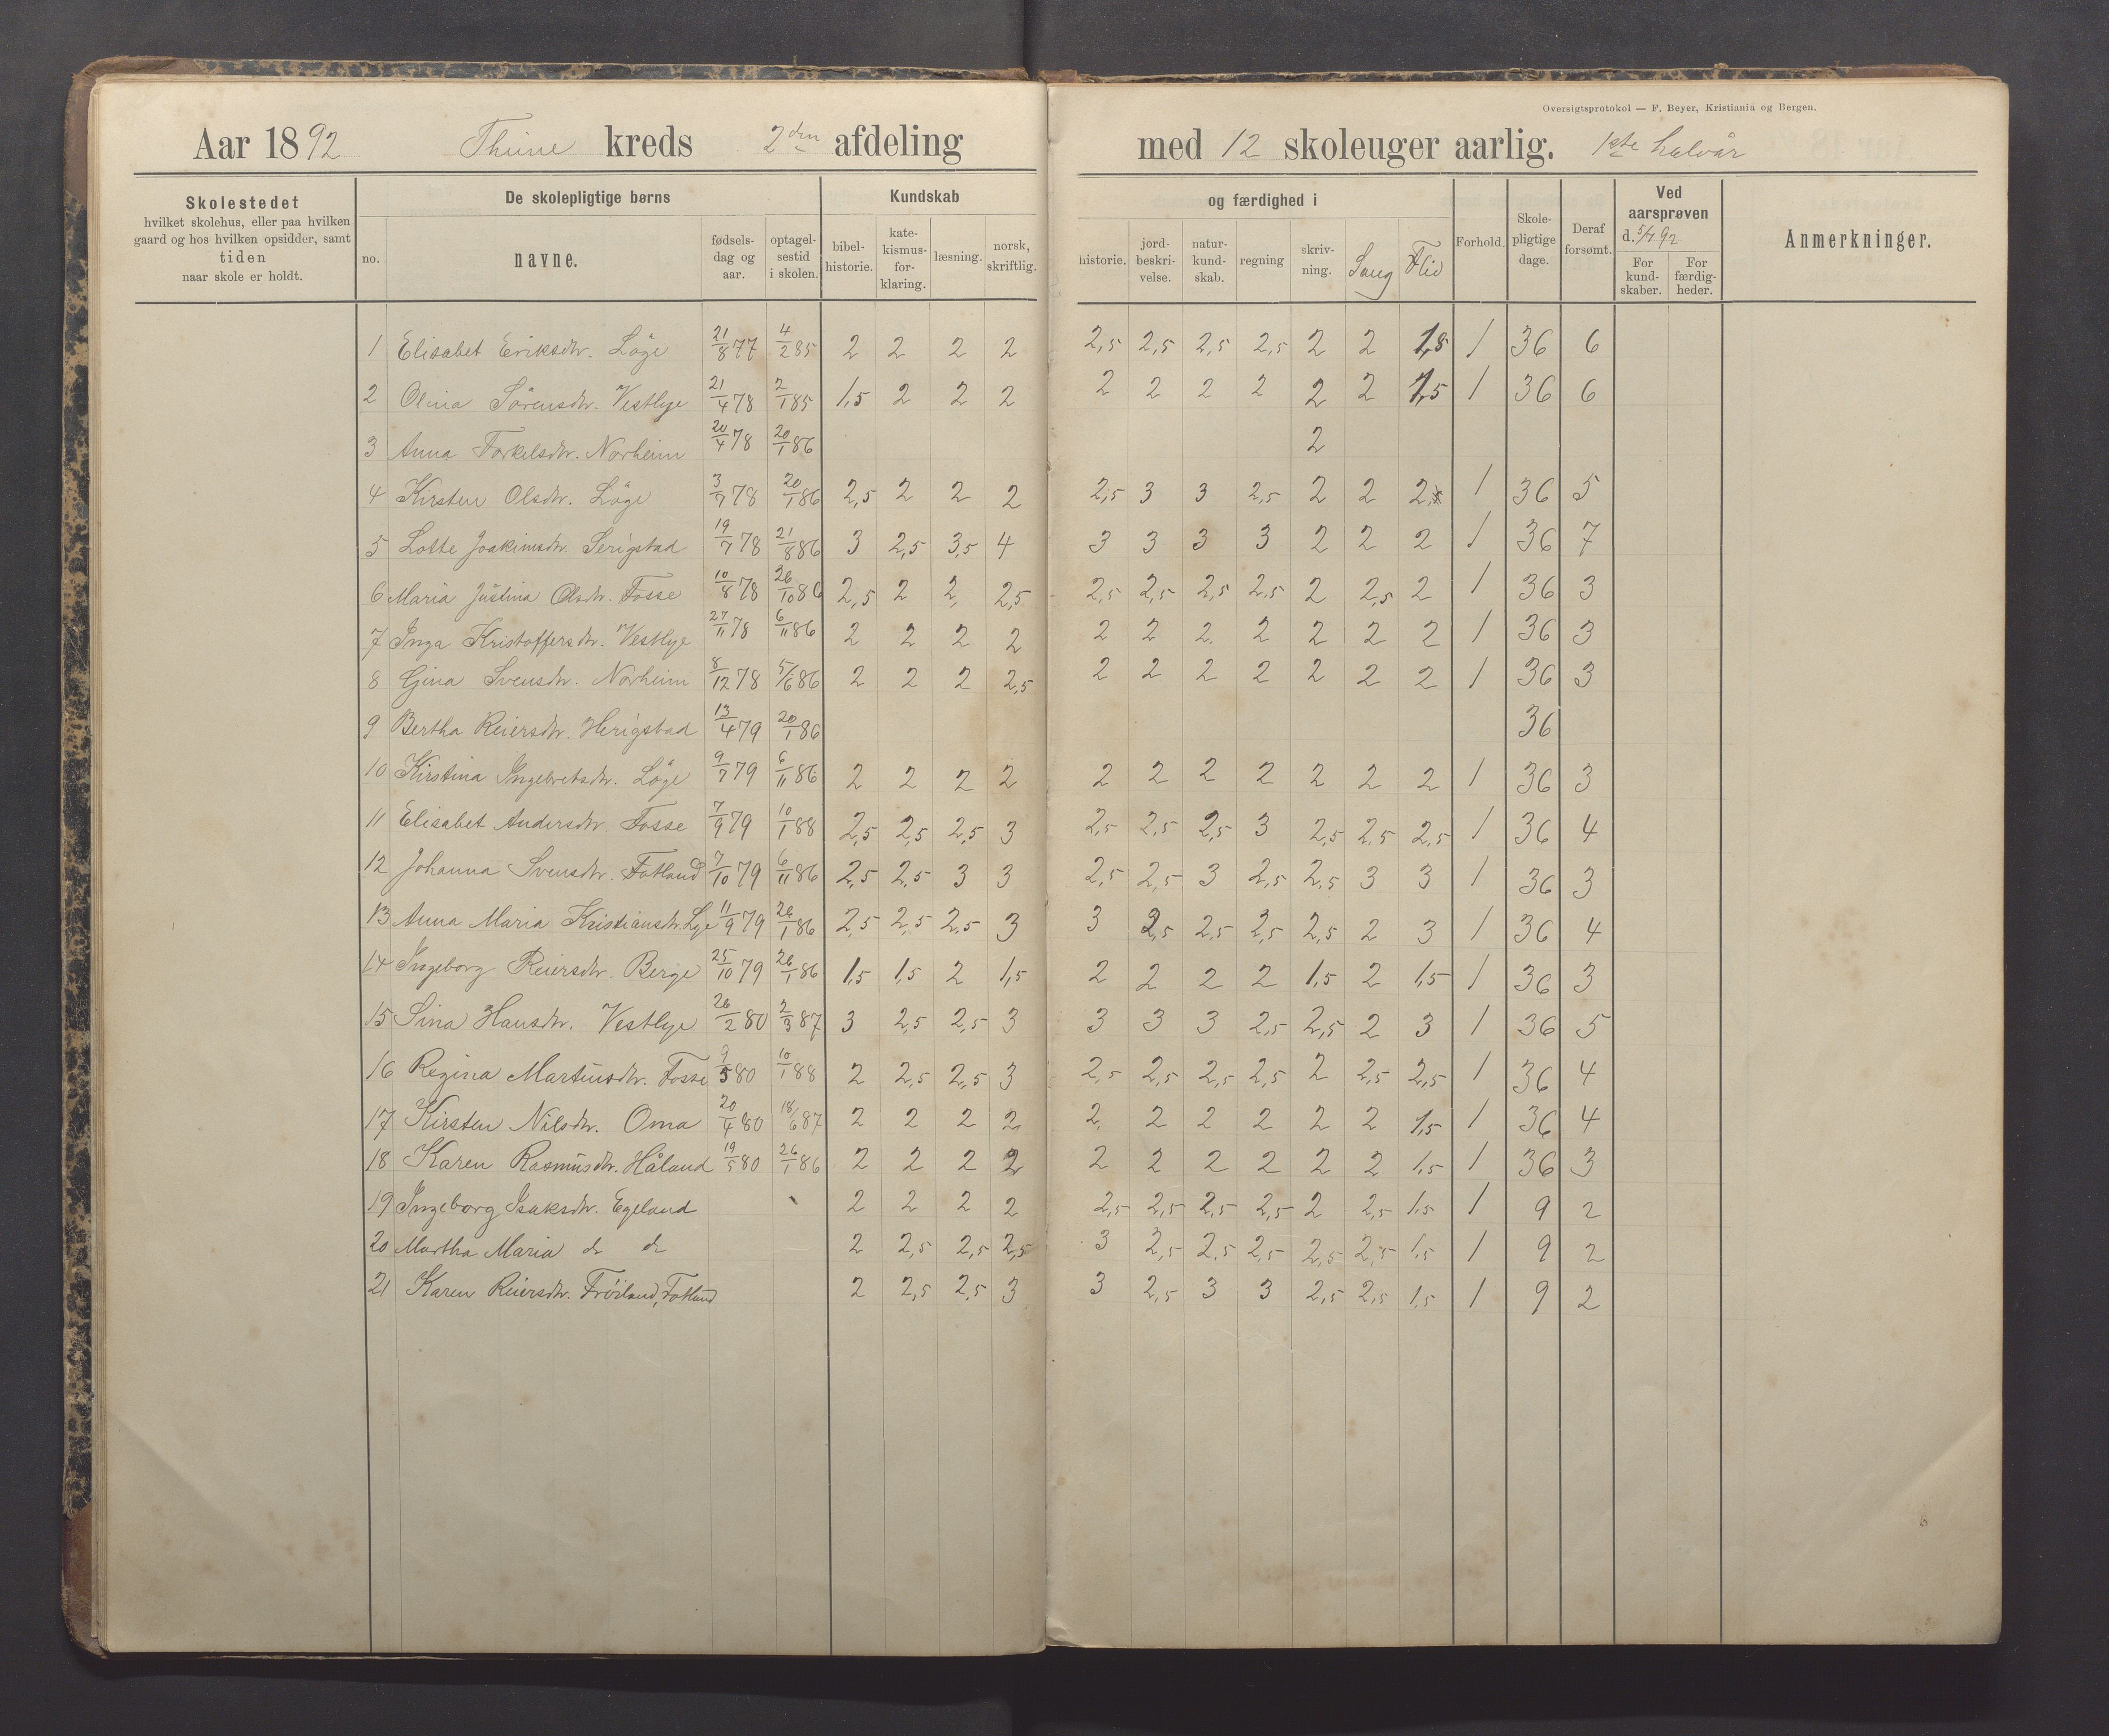 Oversigtsprotokol — F. Beyer, Kristiania og Bergen.
Aar 1892 Thime kreds 2den afdeling med 12 skoleuger aarlig. 1ste halvår
Skolestedet hvilket skolehus, eller paa hvilken gaard og hos hvilken opsidder, samt tiden naar skole er holdt.
De skolepligtige børns
no. navne. fødsels-dag og aar. optagel-sestid i skolen.
Kundskab og færdighed i
bibel-historie. kate-kismus-for-klaring. læsning. norsk, skriftlig. historie. jord-beskri-velse. natur-kund-skab. regning skriv-ning. Sang Flid
Forhold. Skole-pligtige dage. Deraf forsømt.
Ved aarsprøven d. 5/7 92
For kund-skaber. For færdig-heder.
Anmerkninger.
1 Elisabet Eriksdtr. Löge 21/8 77 4/2 85 2 2 2 2 2,5 2,5 2,5 2,5 2 2 1,5 1 36 6
2 Olina Sörensdtr. Vestlye 21/4 78 2/1 85 1,5 2 2 2 2 2 2 2 2 2 1,5 1 36 6
3 Anna Torkelsdtr. Norheim 20/4 78 20/1 86 2
4 Kirsten Olsdtr. Löge 3/7 78 20/1 86 2,5 2 2 2 2,5 3 3 2,5 2 2 2 1 36 5
5 Lotte Joakimsdtr. Serigstad 19/7 78 21/8 86 3 2,5 3,5 4 3 3 3 3 2 2 2 1 36 7
6 Maria Justina Olsdtr. Fosse 10/8 78 26/10 86 2,5 2 2 2,5 2,5 2,5 2,5 2,5 2 2,5 2 1 36 3
7 Inga Kristoffersdtr. Vestlye 27/11 78 6/11 86 2 2 2 2 2 2 2 2 2 2 2 1 36 3
8 Gina Svensdtr. Norheim 8/12 78 5/6 86 2 2 2 2,5 2 2 2 2 2 2 2 1 36 3
9 Bertha Reiersdtr. Herigstad 13/4 79 20/1 86 36
10 Kirstina Ingebretsdtr. Löge 9/7 79 6/11 86 2 2 2 2 2 2 2 2 2 2 2 1 36 3
11 Elisabet Andersdtr. Fosse 7/9 79 10/1 88 2,5 2,5 2,5 3 2,5 2,5 2,5 3 2,5 2,5 2,5 1 36 4
12 Johanna Svensdtr. Fotland 7/10 79 6/11 86 2,5 2,5 3 3 2,5 2,5 3 2,5 2,5 3 3 1 36 3
13 Anna Maria Kristiansdtr. Lye 11/9 79 26/1 86 2,5 2,5 2,5 3 3 2,5 2,5 2,5 2,5 2 3 1 36 4
14 Ingeborg Reiersdtr. Berge 25/10 79 26/1 86 1,5 1,5 2 1,5 2 2 2 2 1,5 2 1,5 1 36 3
15 Sina Hansdtr. Vestlye 26/2 80 2/3 87 3 2,5 2,5 3 3 3 3 2,5 2,5 2 3 1 36 5
16 Regina Martinsdtr. Fosse 9/5 80 10/1 88 2 2,5 2,5 3 2,5 2,5 2,5 2,5 2 2,5 2,5 1 36 4
17 Kirsten Nilsdtr. Oma 20/4 80 18/6 87 2 2 2 2 2 2 2 2 2 2 1,5 1 36 4
18 Karen Rasmusdtr. Håland 19/5 80 26/1 86 2 2 2 2 2 2 2 2 2 2 1,5 1 36 3
19 Ingeborg Isaksdtr. Egeland 2 2 2 2 2,5 2,5 2,5 2,5 2 2,5 1,5 1 9 2
20 Martha Maria do do 2 2,5 2,5 2,5 3 2,5 2,5 2,5 2,5 2,5 1,5 1 9 2
21 Karen Reiersdtr. Fröiland, Fotland 2 2,5 2,5 3 3 2,5 3 3 2,5 2,5 1,5 1 9 2